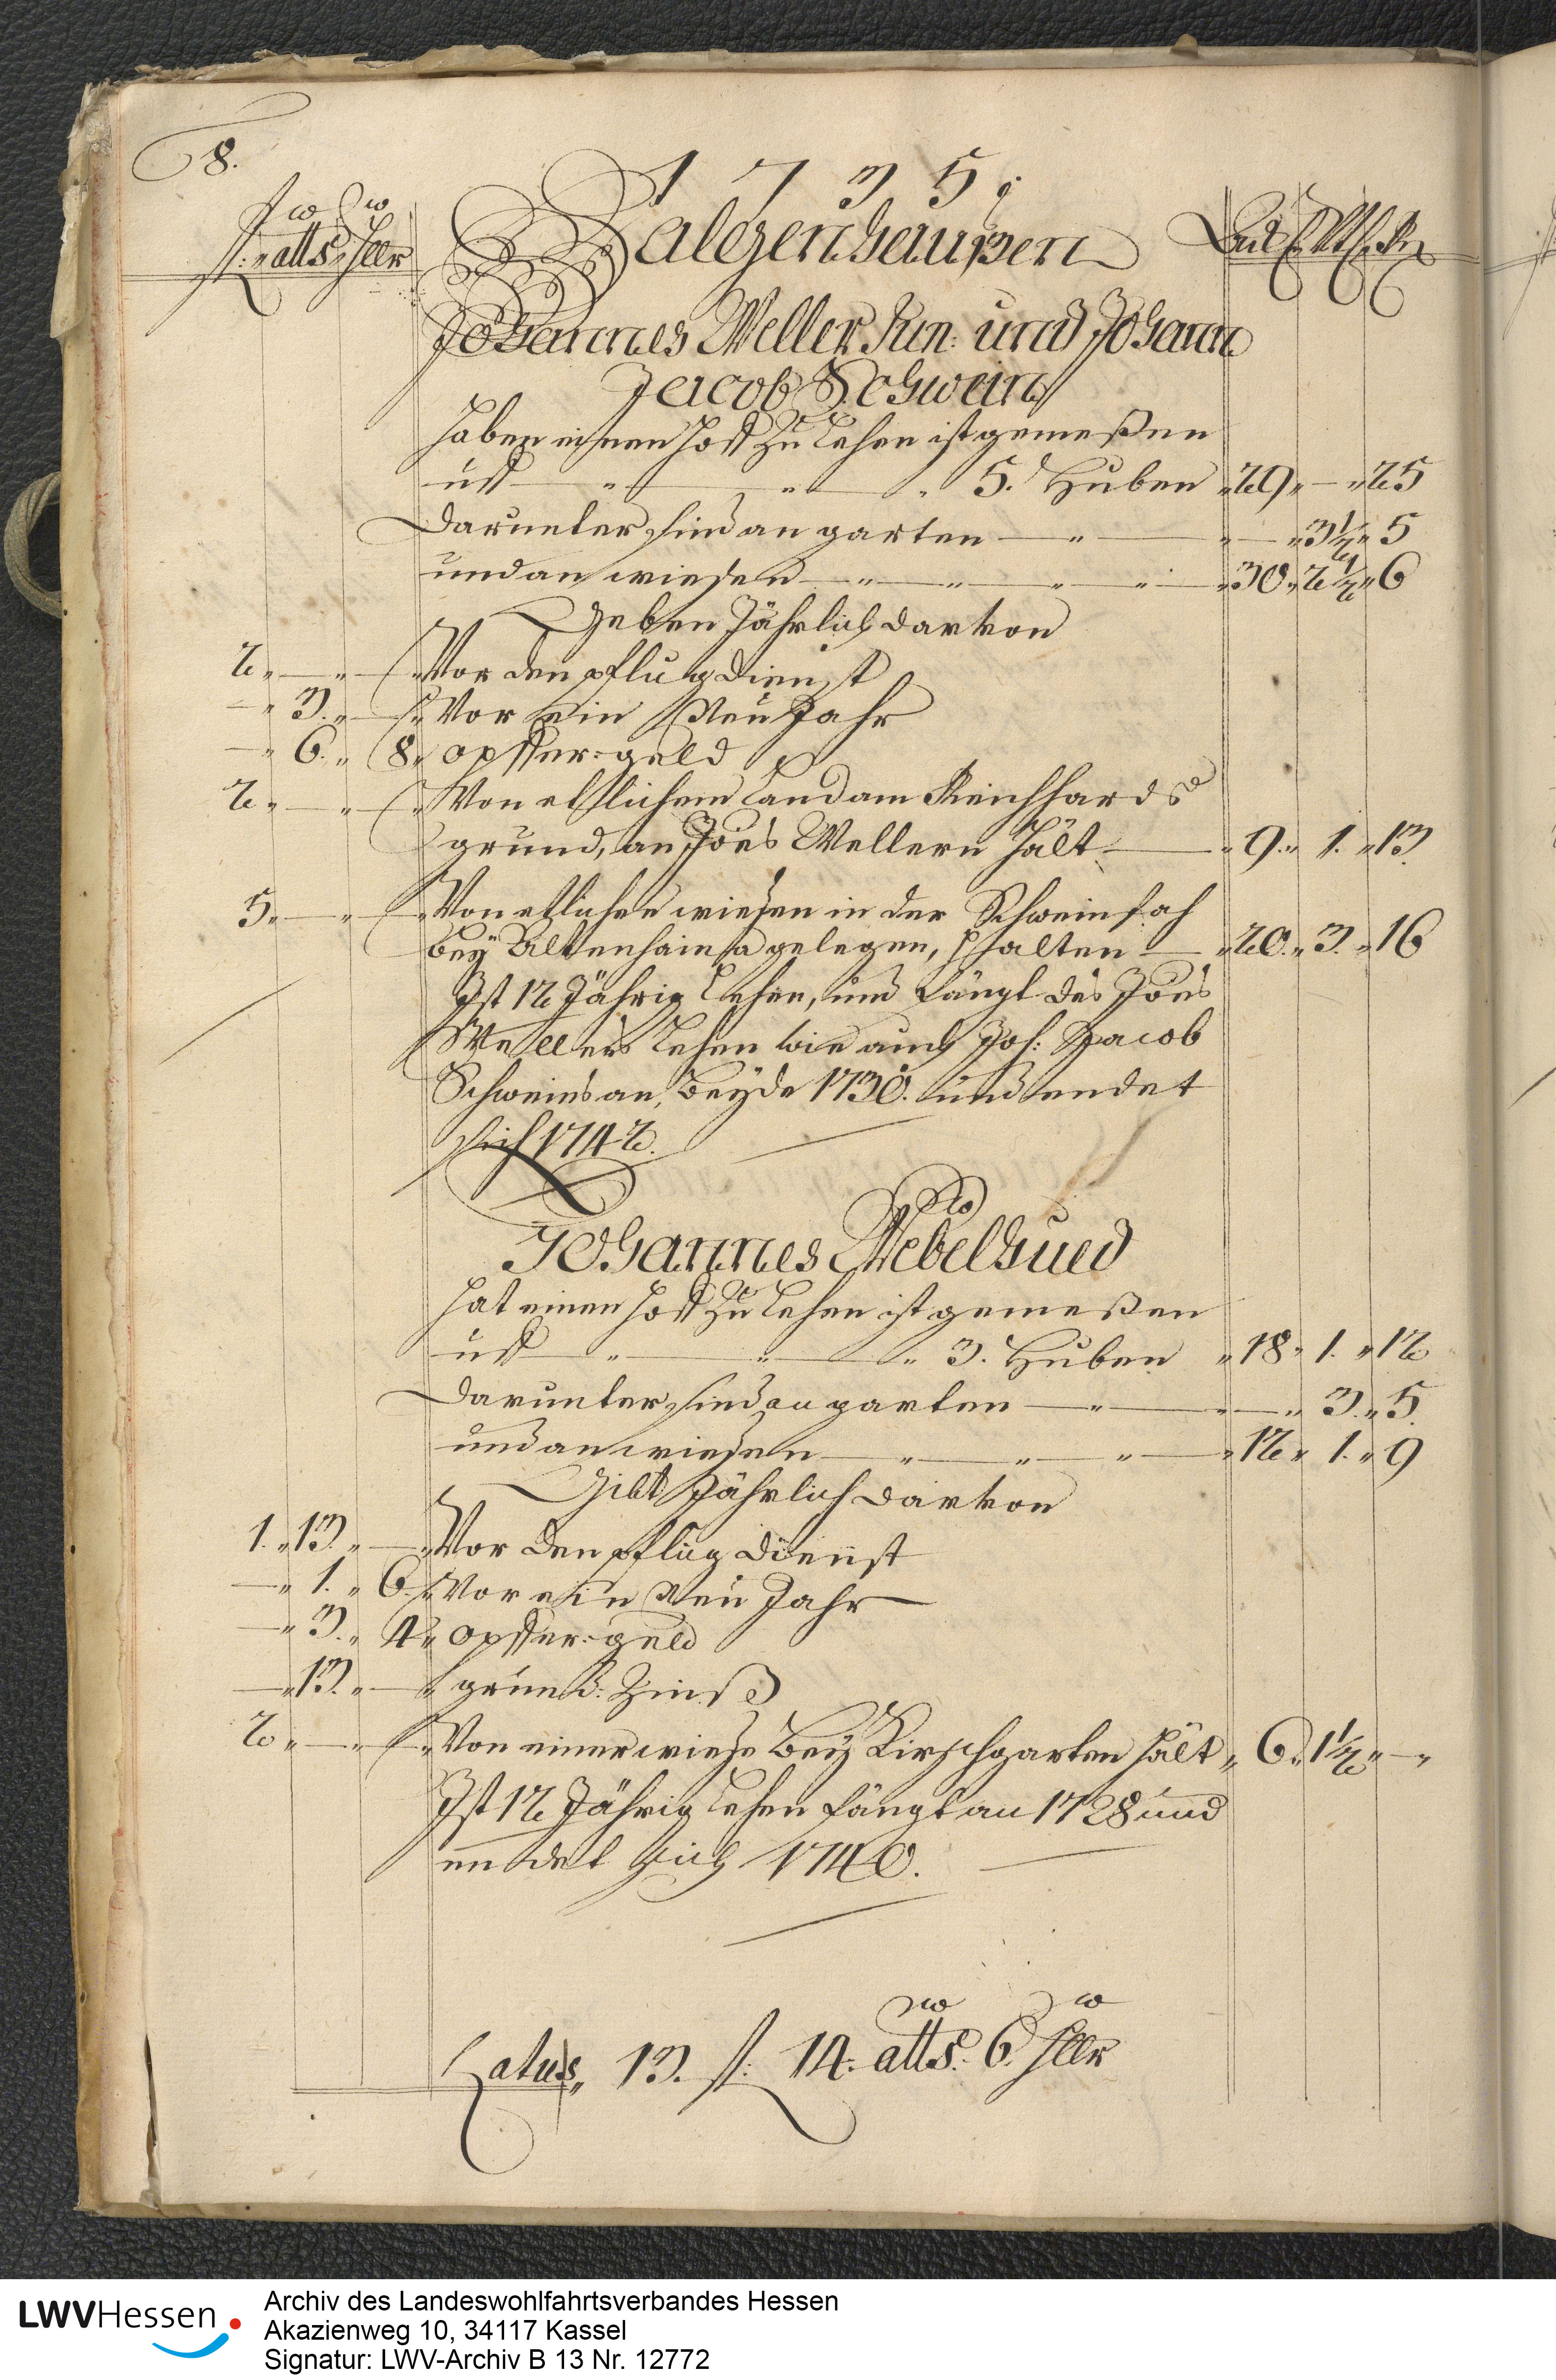 8.
1735.
fl: atts. hllr
Balgenhaußen
Johannes Weller Jun: und Johann
Jacob Schwein
haben einen Hoff zu Lehen ist gemeßen
uff 5. Huben 29 — 25
Darunter sind an garten — 3½ 5
und an wiesen 30 2½ 6
Geben Jährlich darvon
2 — — Vor den pflug dienst
— 3. — Vor ein Neu Jahr
— 6. 8 opffer-geld
2 — — Von etlichem Land am Reichhards
grund, an Joes Wellern hält 9. 1. 13.
5. — — Von etlichen wiesen in der Schweinsah
bey Altenhaina gelegen, halten 20. 3. 16
Ist 12 Jährig Lehen, und fängt des Joes
Wellers Lehen wie auch Joh: Jacob
Schweins an, beyde 1730. und endet
sich 1742.
Johannes Nebelhued
hat einen Hoff zu Lehen ist gemeßen
uff 3. Huben 18 1. 12
Darunter sind an garten — 3. 5.
und an wiesen 12 1. 9
Gibt Jährlich darvon
1. 13. — Vor den pflug dienst
— 1. 6. Vor ein Neu Jahr
— 3. 4 opffer-geld
— 13. — grund: Zinß
2 — — Von einer wiese bey Kirschgarten hält 6. 1½ —
Ist 12 Jährig Lehen fängt an 1728 und
endet sich 1740.
Latus 13. fl: 14. atts. 6. hllr
LWVHessen
Archiv des Landeswohlfahrtsverbandes Hessen
Akazienweg 10, 34117 Kassel
Signatur: LWV-Archiv B 13 Nr. 12772